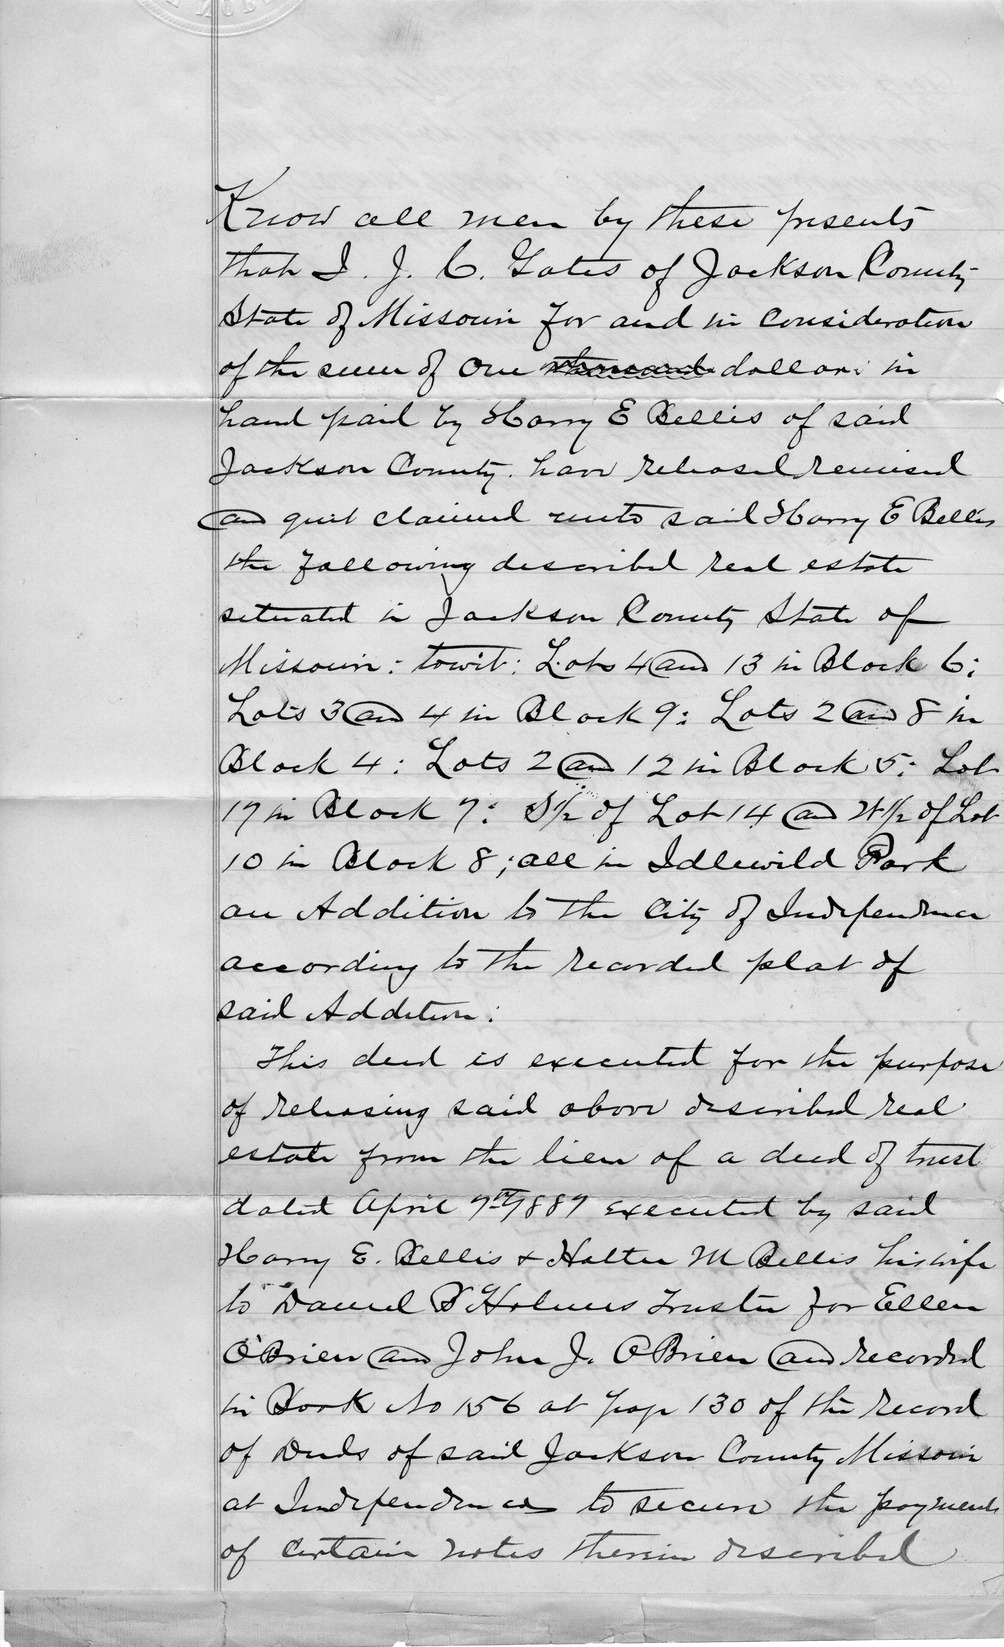 Know all men by these presents
that I. J. C. Gates of Jackson County
State of Missouri for and in consideration
of the sum of One thousand dollars in
hand paid by Harry E Bellis of said
Jackson County. have released remised
and quit claimed unto said Harry E Bellis
the following described real estate
situated in Jackson County State of
Missouri: towit: Lots 4 and 13 in Block 6:
Lots 3 and 4 in Block 9: Lots 2 and 8 in
Block 4: Lots 2 and 12 in Block 5: Lot
17 in Block 7: S½ of Lot 14 and W½ of Lot
10 in Block 8; all in Idlewild Park
an Addition to the City of Independence
according to the recorded plat of
said Addition:
This deed is executed for the purpose
of releasing said above described real
estate from the lien of a deed of trust
dated April 7th 1887 executed by said
Harry E. Bellis & M Bellis his wife
to Daniel B Holmes Trustee for Ellen
O'Brien and John J. O'Brien and recorded
in Book No 156 at page 130 of the record
of Deeds of said Jackson County Missouri
at Independence to secure the payment
of certain notes therein described